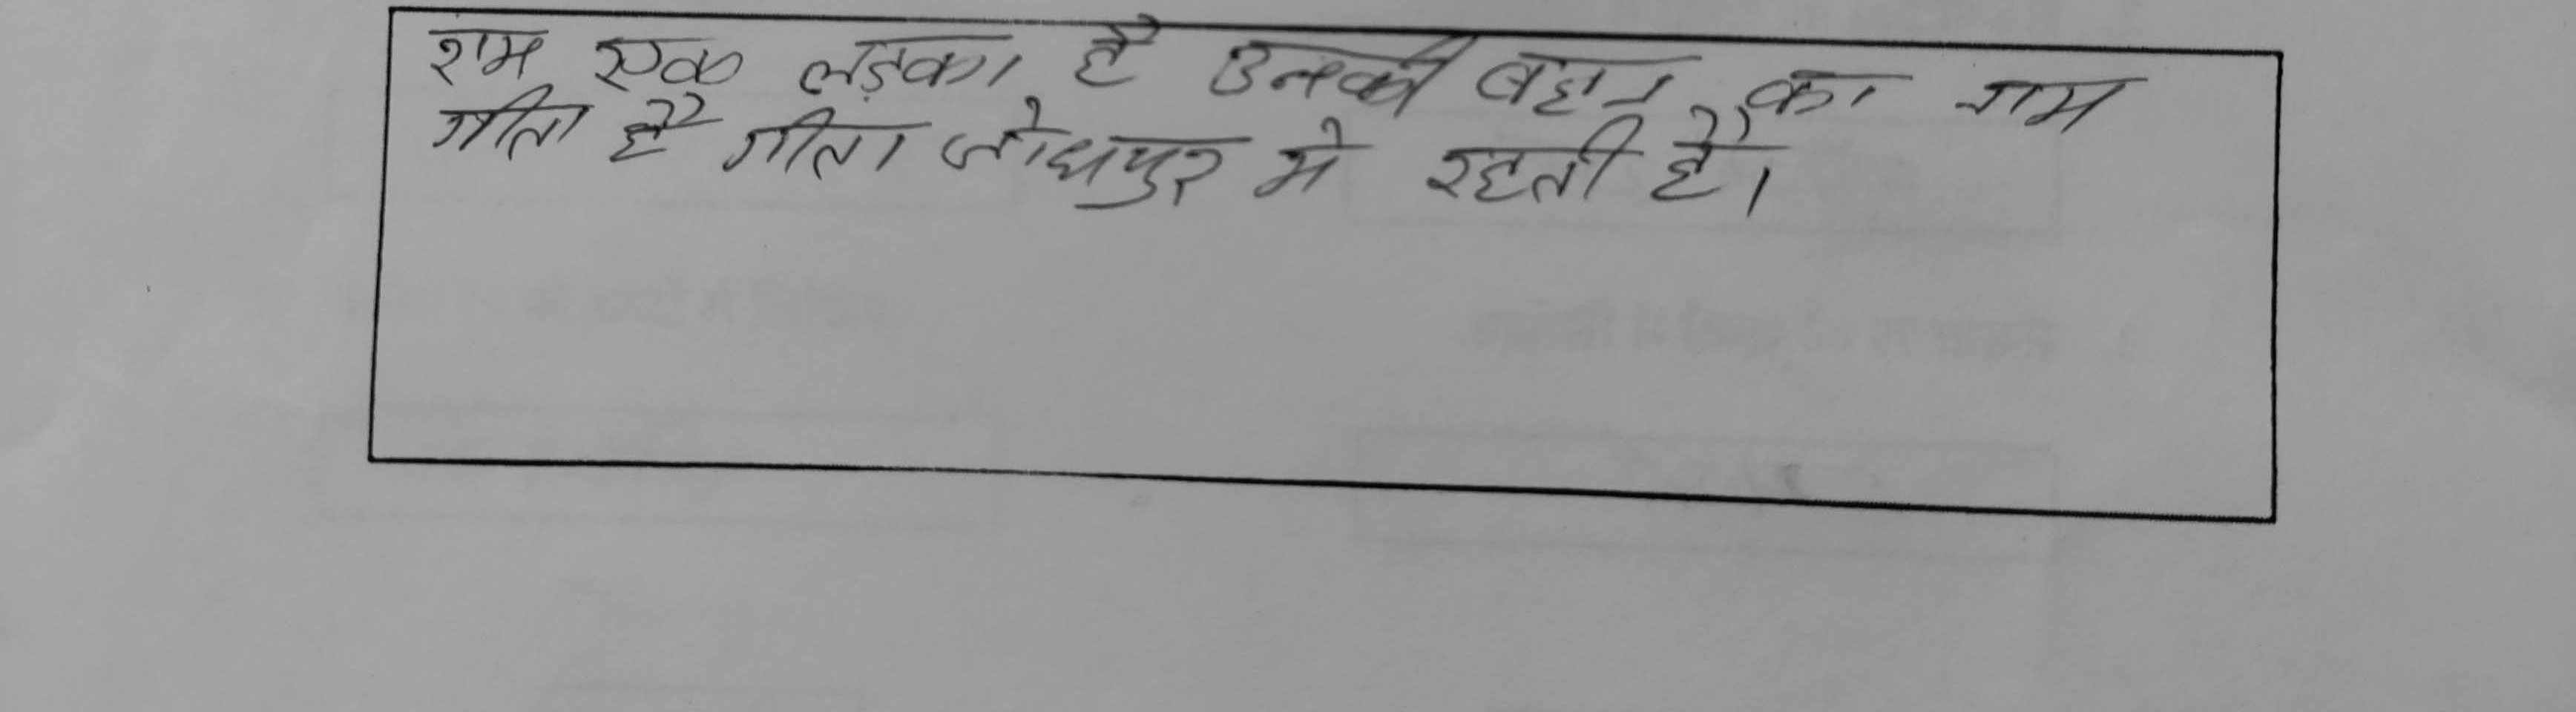 राम एक लड़का है उनकी बहन का नाम
गीता है गीता जोधपुर मे रहती है।